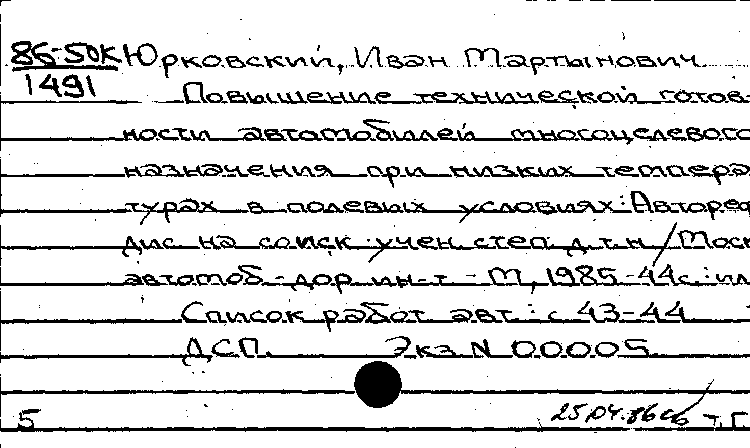 86-50К Юрковский, Иван Мартынович
1491
Повышение технической готов-
ности автомобиллей многоцелевого
назначения при низких темпера-
турах в полевых условиях: Автореф
дис. на соиск. учен. степ. д.т.н / Моск
автомоб.-дор. ин-т. - М, 1985 - 44с.: ил
Список работ авт.: с 43-44
ДСП. Экз N 00005
5 25.04.86 т. Г